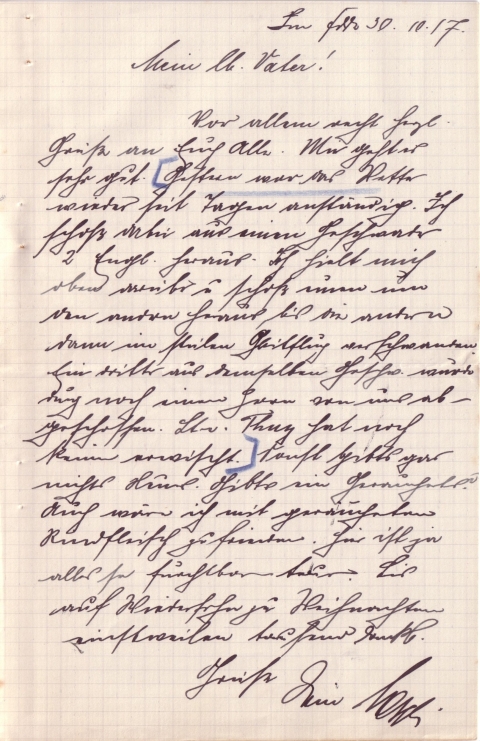 Im Felde 30. 10. 17.
Mein lb. Vater!
Vor allem recht herzl.
Grüße an Euch Alle. Mir geht es
sehr gut. [Gestern war das Wetter
wieder seit Tagen anständig. Ich
schoß dabei aus einem Geschwader
2 Engl. heraus. Ich hielt mich
oben drüber u schoß einen um
den andern heraus bis die andern
dann im steilen Gleitflug verschwanden
Ein dritter aus demselben Geschw. wurde
dazu noch einem Herrn von uns ab-
geschossen. Lt. v. hat noch
keinen erwischt.] Sonst gibts gar
nichts Neues. Gibts ein Geräuchertes?
Auch wäre ich mit geräuchertem
Rindfleisch zufrieden. Hier ist ja
alles so furchtbar teuer. Bis
auf Wiedersehn zu Weihnachten
einstweilen tausend
Grüße Dein